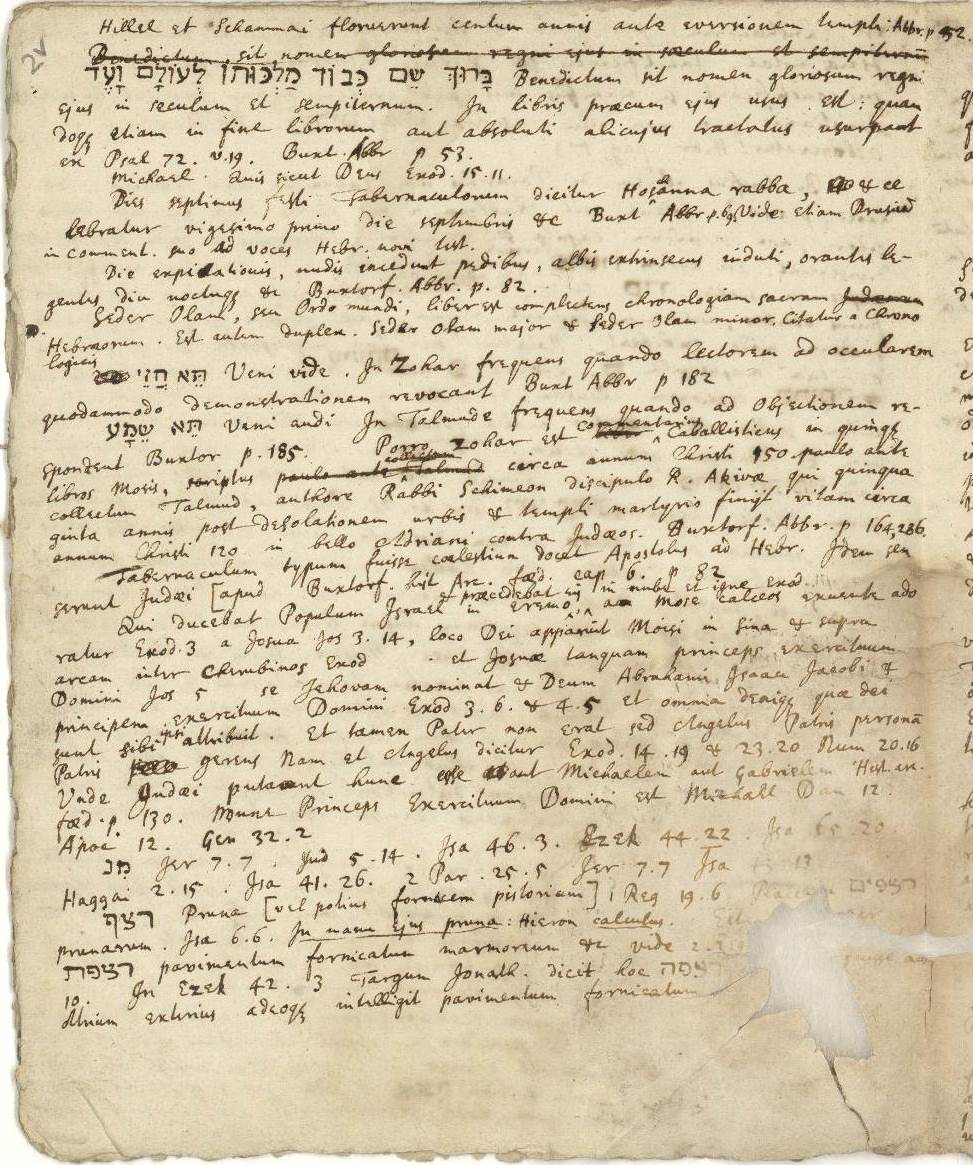 2v
Hillel et Schammai floruerunt centum annis ante eversionem templi. Abbr. p 52.
Benedictum sit nomen gloriosum regni ejus in sæculum et sempiternum
בָּרוּךְ שֵׁם כְּבוֹד מַלְכוּתוֹ לְעוֹלָם וָעֶד Benedictum sit nomen gloriosum regni
ejus in sæculum et sempiternum. In libris præcum ejus usus est: quan
doqꝫ etiam in fine librorum aut absoluti alicujus tractatus usurpant
ex Psal 72. v.19. Buxt. Abbr p 53.
Michael. Quis sicut Deus Exod. 15.11.
Dies septimus festi Tabernaculorum dicitur Hosanna rabba, & ce
lebratur vigesimo primo die septembris &c Buxt Abbr. p. 69 Vide etiam Drusiū
in comment. suo ad voces Hebr. novi test.
Die expiationis, nudis incedunt pedibus, albis extrinsecus induti, orantes le-
gentes, diu noctuqꝫ &c Buxtorf. Abbr. p. 82.
Seder Olam, seu Ordo mundi, liber est complectens chronologiam sacram Judæorum
Hebræorum. Est autem duplex. Seder Olam major & Seder Olam minor. Citatur a Chrono
logicis
תָּא חֲזֵי Veni vide. In Zohar frequens quando lectorem ad occularem
quodammodo demonstrationem revocant Buxt Abbr p 182
תָּא שְׁמַע Veni audi In Talmude frequens quando ad Objectionem re-
spondent Buxtor p. 185. Porro Zohar est commentarius Caballisticus in quinqꝫ
libros Mosis, scriptus paulo ante Talmud circa annum Christi 150 paulo ante
collectum Talmud, authore Rabbi Schimeon discipulo R. Akivæ qui quinqua
ginta annis post desolationem urbis & templi martyrio finijt vitam circa
annum Christi 120 in bello Adriani contra Judæos. Buxtorf. Abbr. p 164, 286.
Tabernaculum typum fuisse cœlestium docet Apostolus ad Hebr. Idem sen
serunt Judæi [apud Buxtorf. hist Arc. fœd. cap 6. p 82
Qui ducebat Populum Israel in Eremo, & præcedebat eis in nube et igne Exod a Mose calceos exuente ado
ratur Exod. 3 a Josua Jos 3. 14, loco Dei apparuit Mosi in Sina & supra
arcam inter Cherubinos Exod . et Josuæ tanquam princeps exercituum
Domini Jos 5 se Jehovam nominat & Deum Abrahami Isaaci Jacobi &
principem exercituum Domini Exod 3. 6. & 4.5 et omnia deniqꝫ quæ dei
sunt sibi ipsi attribuit. Et tamen Pater non erat sed Angelus Patris personā
Patris gerens Nam et Angelus dicitur Exod. 14. 19 & 23.20 Num 20.16
Unde Judæi putarunt hunc esse aut Michaelem aut Gabrielem Hist. arc.
fœd. p. 130. Nunc Princeps Exercituum Domini est Michael Dan 12.
Apoc 12. Gen 32. 2
מִן Jer 7. 7. Jud 5. 14. Isa 46. 3. Ezek 44. 22. Isa 65. 20.
Haggai 2. 15. Isa 41. 26. 2 Par. 25. 5 Jer 7.7 Isa
רצף Pruna [vel potius fornicem pistorium] 1 Reg 19. 6 רצפים
prunarum. Isa 6.6. In manu ejus pruna: Hieron calculus.
רצפת pavimentum fornicatum marmoreum &c vide 2.
10. In Ezek 42. 3 Targum Jonath. dicit hoc רצפה
Atrium exterius adeoqꝫ intelligit pavimentum fornicatum